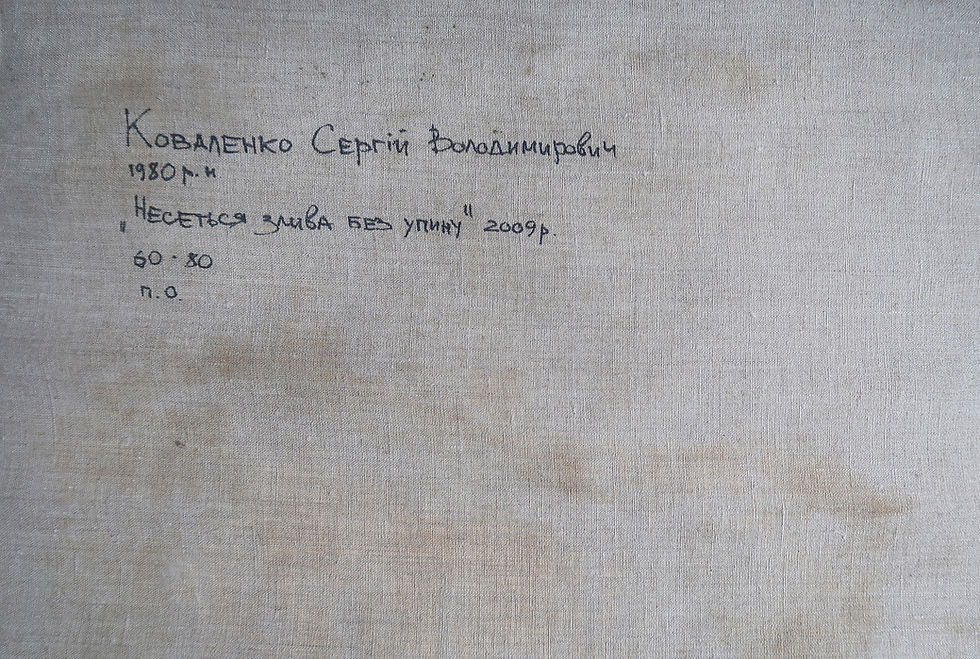 Коваленко Сергій Володимирович
1980 р. н
„Несеться злива без упину" 2009р.
60 · 80
п. о.